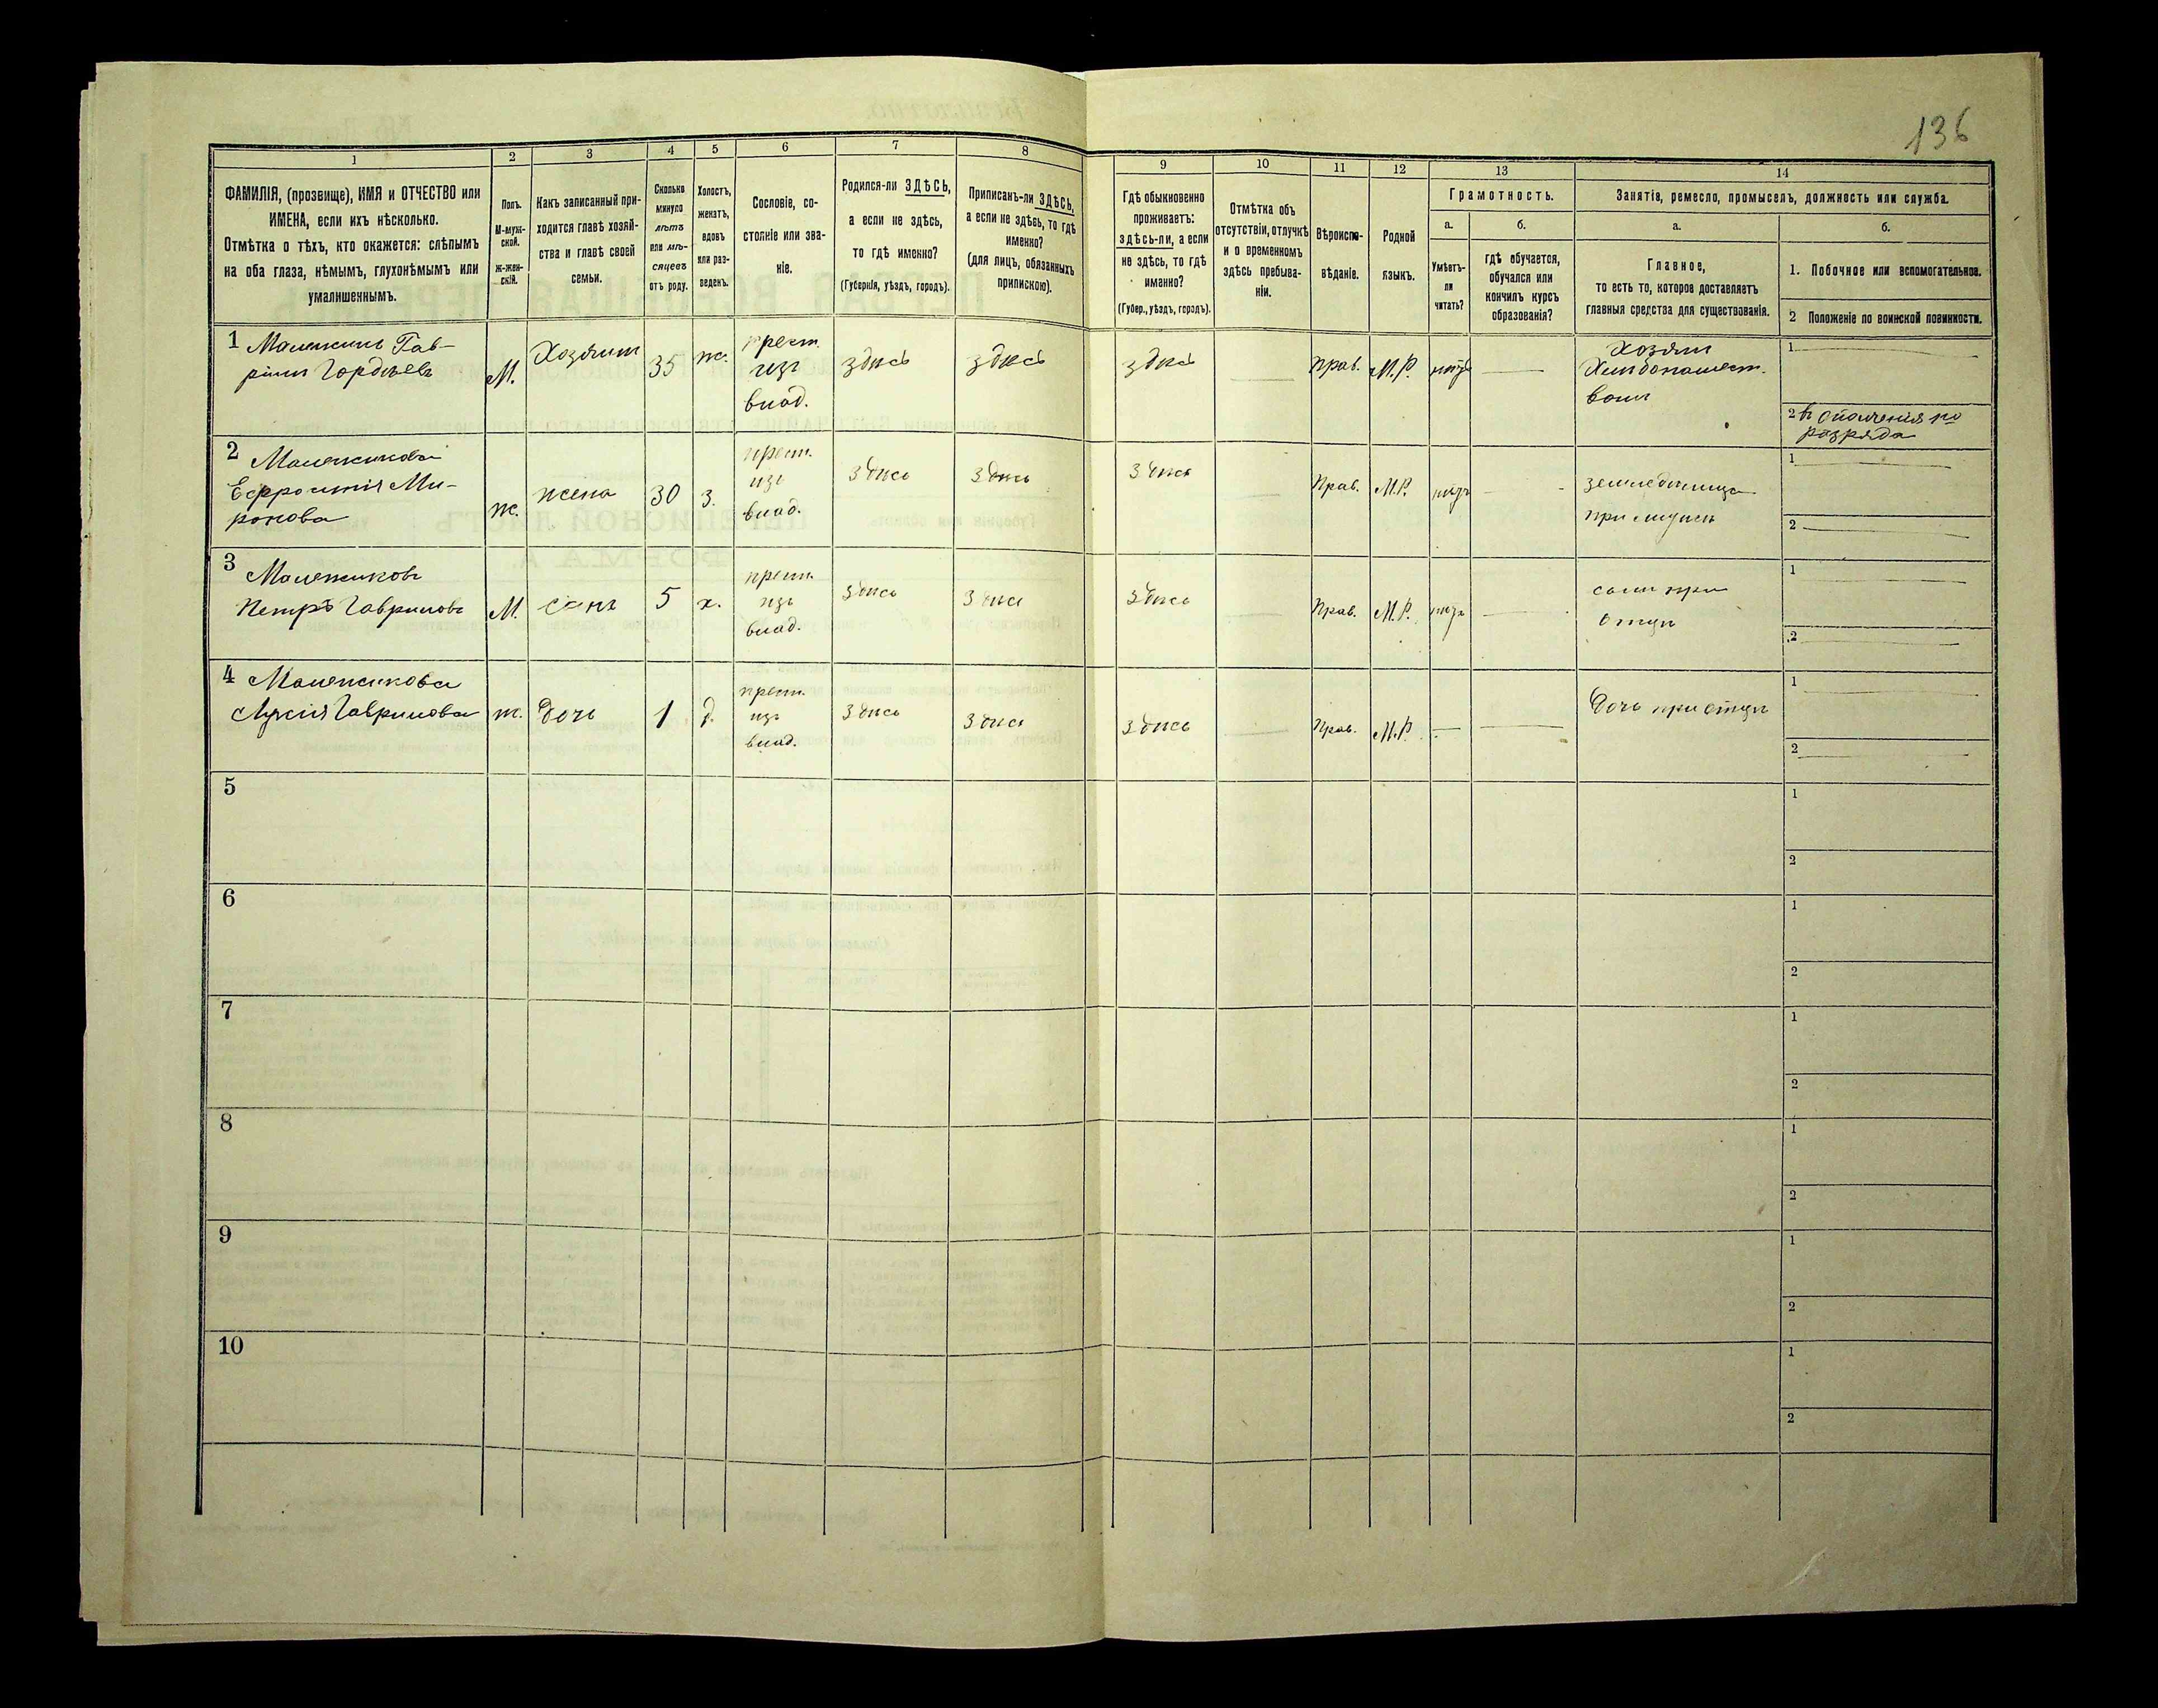 136
1
2
3
4
5
6
7
8
9
10
11
12
13
14
ФАМИЛІЯ, (прозвище), ИМЯ и ОТЧЕСТВО или
ИМЕНА, если ихъ нѣсколько.
Отмѣтка о тѣхъ, кто окажется: слѣпымъ
на оба глаза, нѣмымъ, глухонѣмымъ или
умалишеннымъ.
Полъ.
М-муж-
ской.
Ж-жен-
скій.
Какъ записанный при-
ходится главѣ хозяй-
ства и главѣ своей
семьи.
Сколько
минуло
лѣтъ
или мѣ-
сяцевъ
отъ роду.
Холостъ,
женатъ,
вдовъ
или раз-
веденъ.
Сословіе, со-
стояніе или зва-
ніе.
Родился-ли ЗДѢСЬ,
а если не здѣсь,
то гдѣ именно?
(Губернія, уѣздъ, городъ).
Приписанъ-ли ЗДѢСЬ,
а если не здѣсь, то гдѣ
именно?
(для лицъ, обязанныхъ
припискою).
Гдѣ обыкновенно
проживаетъ:
здѣсь-ли, а если
не здѣсь, то гдѣ
именно?
(Губер., уѣздъ, городъ).
Отмѣтка объ
отсутствіи, отлучкѣ
и о временномъ
здѣсь пребыва-
ніи.
Вѣроиспо-
вѣданіе.
Родной
языкъ.
Грамотность.
а.
Умѣетъ-
ли
читать?
б.
гдѣ обучается,
обучался или
кончилъ курсъ
образованія?
Занятіе, ремесло, промыселъ, должность или служба.
а.
Главное,
то есть то, которое доставляетъ
главныя средства для существованія.
б.
1. Побочное или вспомогательное.
2 Положеніе по воинской повинности.
1 Гав-
Гордѣевъ
М.
Хозяинъ
35
ж.
крест.
изъ
влад.
здѣсь
здѣсь
здѣсь
Прав.
М.Р.
нѣтъ
Хозяин
1
2
разряда
2
Ефросинія Ми-
ронова
ж.
жена
30
з.
крест.
изъ
влад.
здѣсь
здѣсь
здѣсь
Прав.
М.Р.
нѣтъ
при мужѣ
1
2
3
Петръ Гавриловъ
М.
сынъ
5
х.
крест.
изъ
влад.
здѣсь
здѣсь
здѣсь
Прав.
М.Р.
нѣтъ
сынъ при
отцѣ
1
2
4
Гаврилова
ж.
дочь
1
д.
крест.
изъ
влад.
здѣсь
здѣсь
здѣсь
Прав.
М.Р.
дочь при отцѣ
1
2
5
1
2
6
1
2
7
1
2
8
1
2
9
1
2
10
1
2